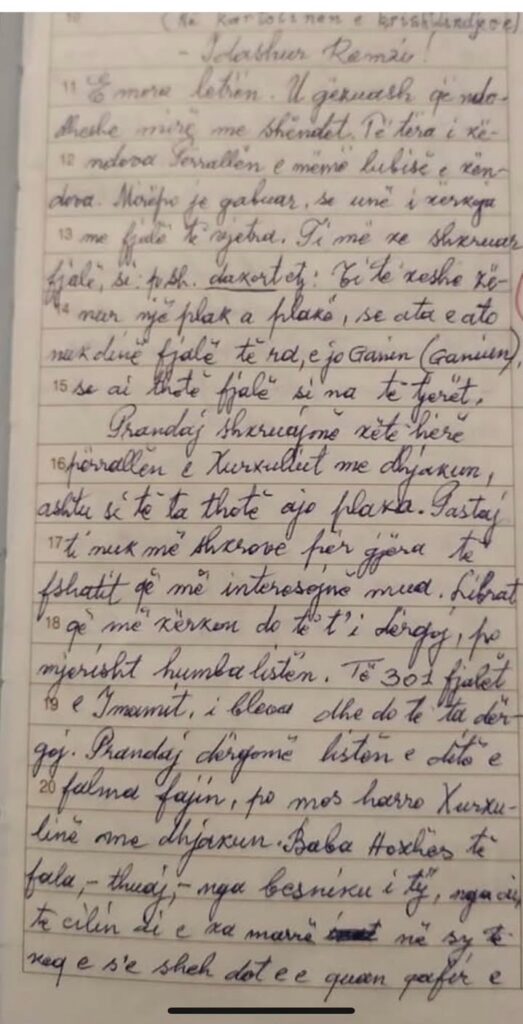 10 (Ne Kartolinen e krishtlindjeve)
- I dashur Ramzi!
11 E mora letrën. U gëzuash që ndo-
dheshe mirë me shëndet. Të tëra i kë-
12 ndova Përrallën e mëmë lubisë e kën-
dova. Mirëpo je gabuar, se unë i kërkoja
13 me fjalë të vjetra. Ti më ke shkruar
fjalë, si: p.sh. dakort etj: Ti të keshe kë-
14 nar një plak a plakë, se ata e ato
nuk dinë fjalë të rd, e jo Ganin (Ganiun),
15 se ai thotë fjalë si na të tjerët.
Prandaj shkruajmë këtë herë
16 përrallën e Kurkulliut me dhjakun,
ashtu si të ta thotë ajo plaka. Pastaj
17 ti nuk më shkrove për gjëra të
fshatit që më interesojnë mua. Librat
18 që më kërkon do të t'i dërgoj, po
mjerisht humba listën. Të 301 fjalët
19 e Imamit, i bleva dhe do të ta dër-
goj. Prandaj dërgomë listën e ditë e
20 falma fajin, po mos harro Kurku-
linë me dhjakun. Baba Hoxhës të
fala, - thuaj, - nga besniku i tij, nga ai,
të cilin ai e ka marrë në sy të
keq e s'e sheh dot e e quan qafir e